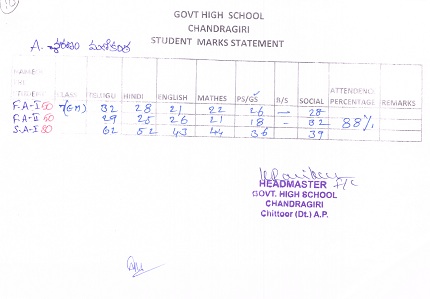 GOVT HIGH SCHOOL
CHANDRAGIRI
STUDENT MARKS STATEMENT
A.
NAME
CLASS TELUGU HINDI ENGLISH MATHES PS/GS B/S SOCIAL ATTENDENCE PERCENTAGE REMARKS
F.A-I 50 7(EM) 32 28 21 22 26 - 28
F.A-II 50 29 25 26 21 18 - 32 88%
S.A-I 80 62 52 43 44 36 39
HEADMASTER F/C
GOVT. HIGH SCHOOL
CHANDRAGIRI
Chittoor (Dt.) A.P.